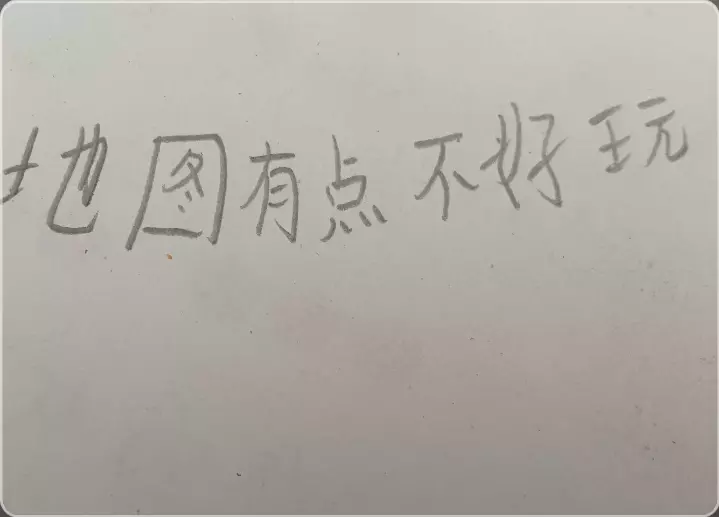 地图有点不好玩